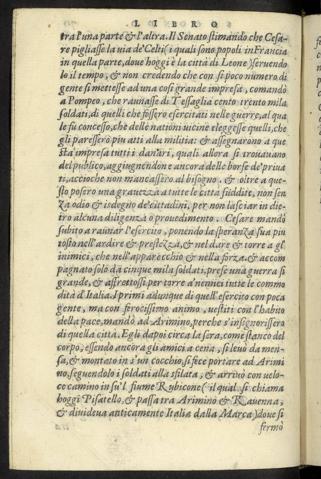 LIBRO
tra l'una parte & l'altra. Il Senato stimando che Cesa-
re pigliasse la via de'Celti (i quali sono popoli in Francia
in quella parte, dove hoggi è la città di Leone) seruendo
lo il tempo, & non credendo che con si poco numero di
gente si mettesse ad una cosi grande impresa, comandò
a Pompeo, che raunasse di Tessaglia cento trenta mila
soldati, di quelli che fossero esercitati nelle guerre, al qua
le fu concesso, che delle nationi uicine eleggesse quelli, che
gli paressero piu atti alla militia: & assegnarono a que
sta impresa tutti i danari, quali allora si trouauano
del publico, aggiugnendone ancora delle borse de'priua
ti, accioche non mancassero al bisogno, & oltre a que-
sto posero una grauezza a tutte le città suddite, non sen
za odio & isdegno de'cittadini, per non lasciar in die-
tro alcuna diligenza ò prouedimento. Cesare mandò
subito a raunar l'esercito, ponendo la speranza sua piu
tosto nell'ardire & prestezza, & nel dare & torre a gl'
inimici, che nell'apparecchio & nella forza, & accom
pagnato solo da cinque mila soldati, prese una guerra si
grande, & affrettossi per torre a'nemici tutte le commo
dita d'Italia. I primi adunque di quell'esercito con poca
gente, ma con ferocissimo animo, uestiti con l'habito
della pace, mandò ad Arimino, perche s'insignorissero
di quella città. Egli dapoi circa la sera, come stanco del
corpo, essendo ancora gli amici a cena, si leuò da men-
sa, & montato in s'un cocchio, si fece portare ad Arimi
no, seguendolo i soldati alla sfilata, & arriuò con uelo-
ce camino in su'l fiume Rubicone (il qual si chiama
hoggi Pisatello, & passa tra Arimino & Rauenna,
& diuideua anticamente Italia dalla Marca) doue si
fermò